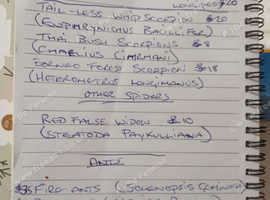 TAIL-LESS WHIP SCORPION £20
(EUAPHRYNICHUS BACILLIFER)
THAI BUSH SCORPIONS £8
(CHAERILUS CIARMANI)
BORNEO FOREST SCORPION £18
(HETEROMETRUS LONGIMANUS)
OTHER SPIDERS
RED FALSE WIDOW £10
(STEATODA PAYKULLIANA)
ANTS
£35 FIRE ANTS (SOLENOPSIS GEMINATA)